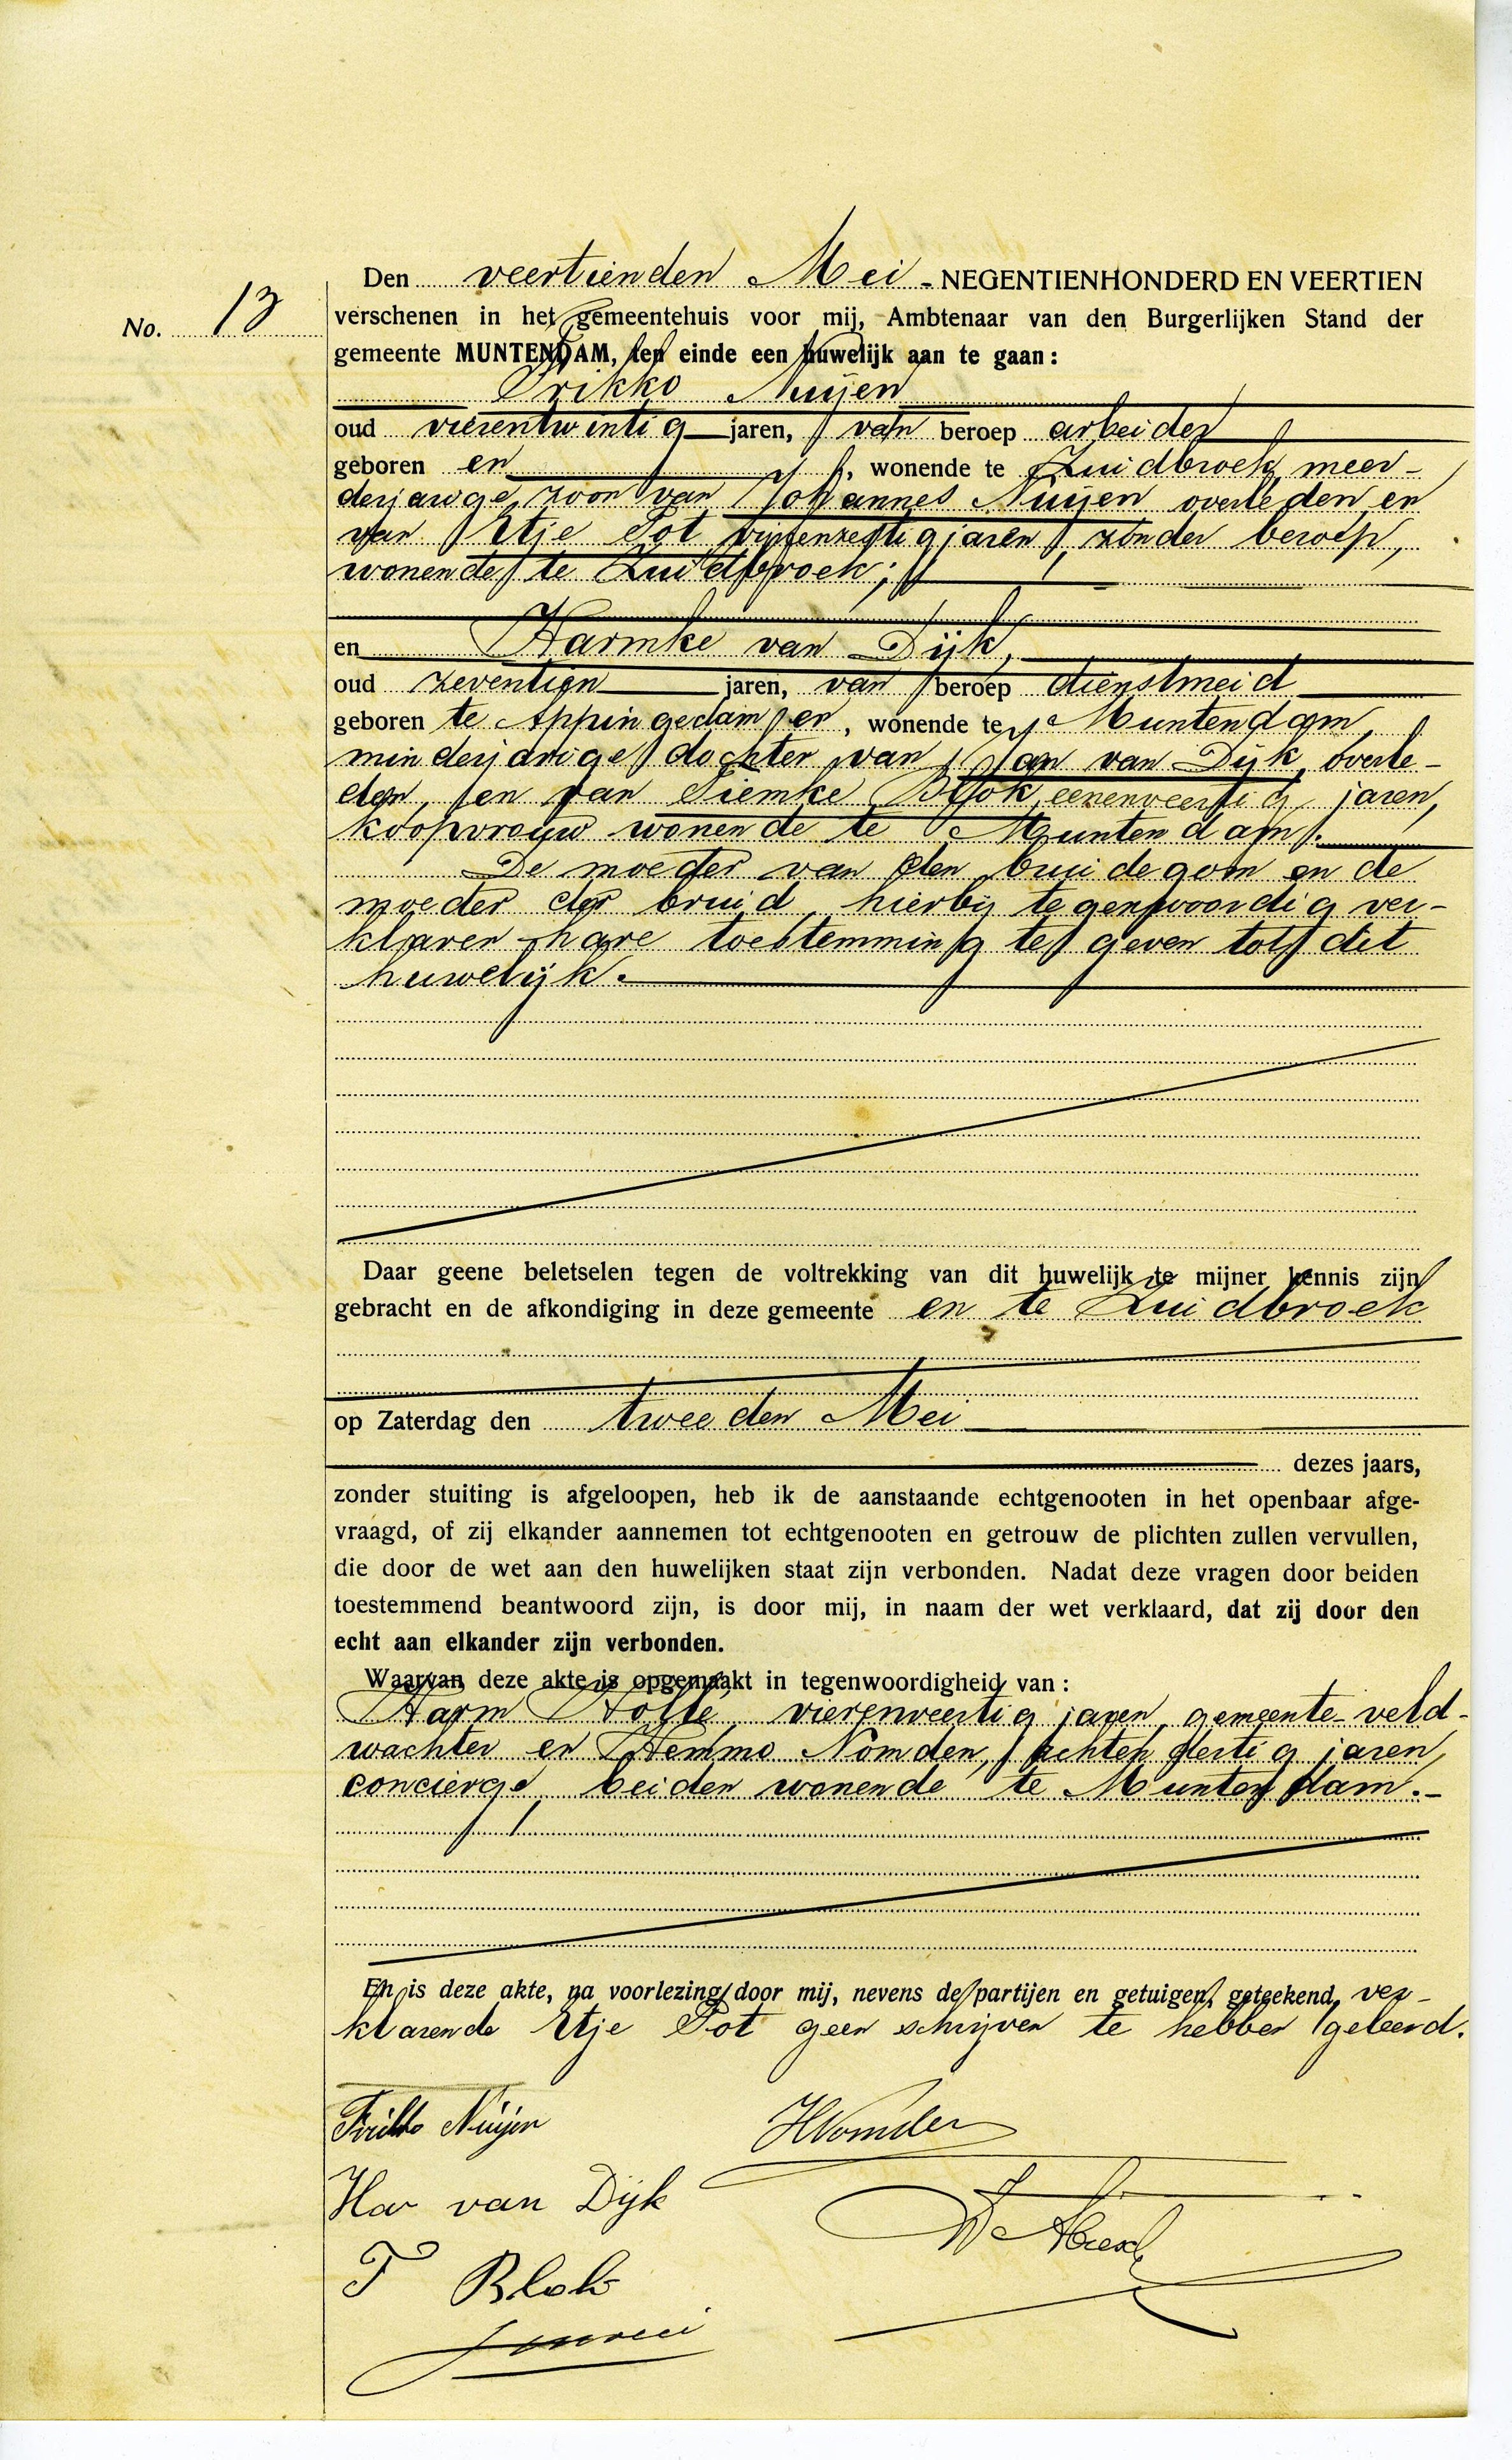 No. 13
Den veertienden Mei - NEGENTIENHONDERD EN VEERTIEN
verschenen in het gemeentehuis voor mij, Ambtenaar van den Burgerlijken Stand der
gemeente MUNTENDAM, ten einde een huwelijk aan te gaan:
Frikko Nuijen
oud vierentwintig jaren, van beroep arbeider
geboren en, wonende te Zuidbroek, meer-
derjarige zoon van Johannes Nuijen overleden en
van Etje Pot vijfenzestig jaren, zonder beroep,
wonende te Zuidbroek;
en Harmke van Dijk,
oud zeventien jaren, van beroep dienstmeid
geboren te Appingedam en, wonende te Muntendam,
minderjarige dochter van Jan van Dijk, overle-
den, en van Tiemke Blok, eenenveertig jaren,
koopvrouw wonende te Muntendam.
De moeder van den bruidegom en de
moeder der bruid, hierbij tegenwoordig ver-
klaren hare toestemming te geven tot dit
huwelijk.
Daar geene beletselen tegen de voltrekking van dit huwelijk te mijner kennis zijn
gebracht en de afkondiging in deze gemeente en te Zuidbroek
op Zaterdag den tweeden Mei
dezes jaars,
zonder stuiting is afgeloopen, heb ik de aanstaande echtgenooten in het openbaar afge-
vraagd, of zij elkander aannemen tot echtgenooten en getrouw de plichten zullen vervullen,
die door de wet aan den huwelijken staat zijn verbonden. Nadat deze vragen door beiden
toestemmend beantwoord zijn, is door mij, in naam der wet verklaard, dat zij door den
echt aan elkander zijn verbonden.
Waarvan deze akte is opgemaakt in tegenwoordigheid van:
Harm Holle, vierenveertig jaren, gemeente-veld-
wachter en Hemmo Nomden, achtendertig jaren,
concierge, beiden wonende te Muntendam.-
En is deze akte, na voorlezing door mij, nevens de partijen en getuigen, geteekend, ver-
klarende Etje Pot geen schrijven te hebben geleerd.
Frikko Nuijen
HNomden
Har van Dijk
T Blok